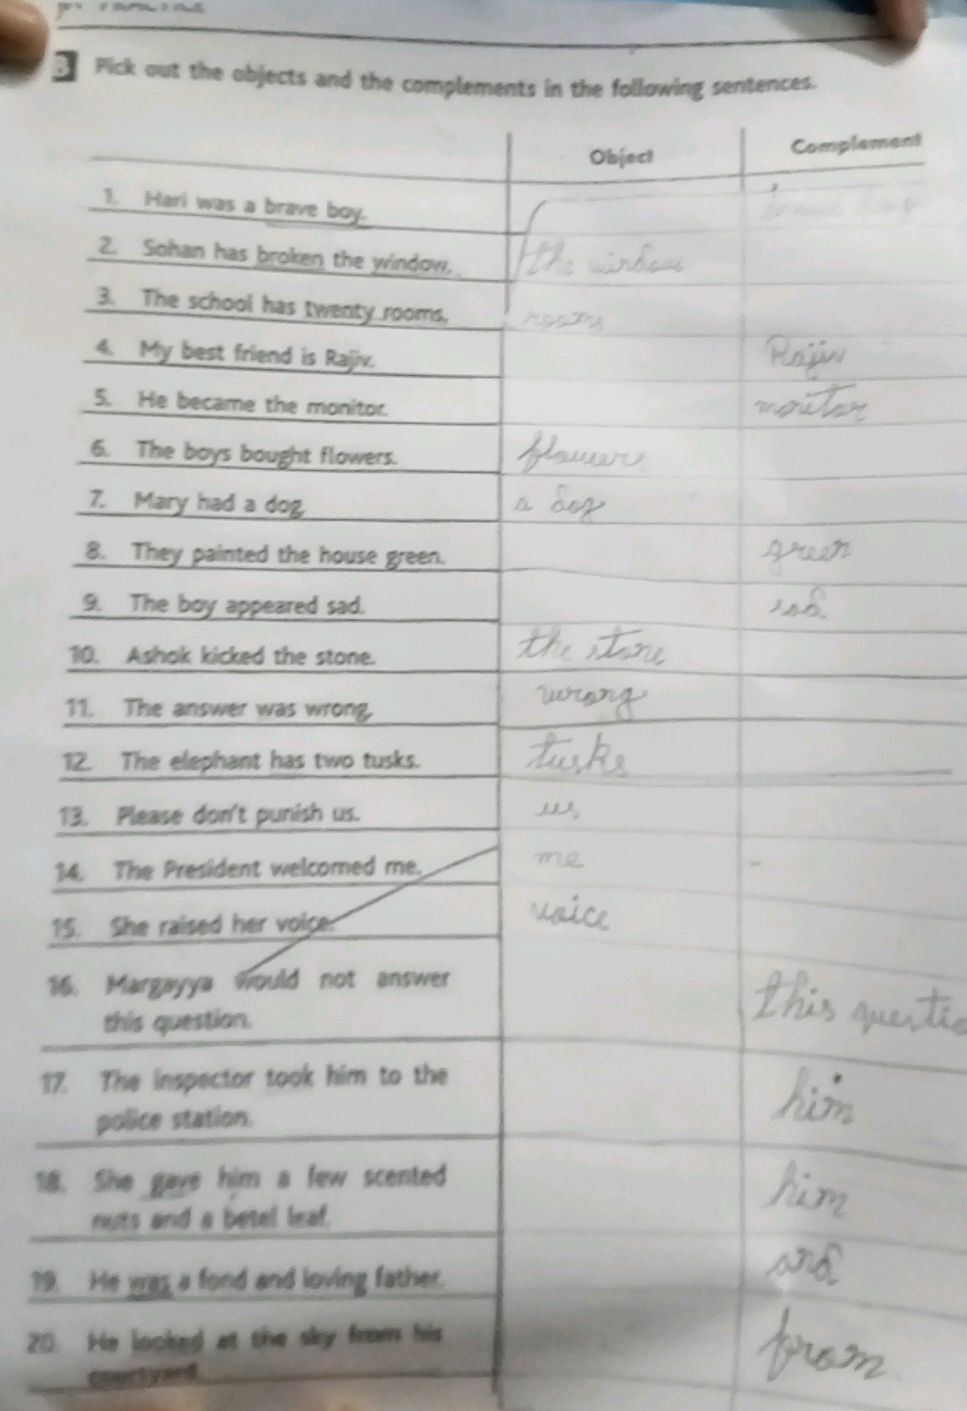 Pick out the objects and the complements in the following sentences.
Object Complement
1. Hari was a brave boy.
2. Sohan has broken the window. the window
3. The school has twenty rooms. rooms
4. My best friend is Rajiv. Rajiv
5. He became the monitor. monitor
6. The boys bought flowers. flowers
7. Mary had a dog. a dog
8. They painted the house green. green
9. The boy appeared sad. sad
10. Ashok kicked the stone. the stone
11. The answer was wrong. wrong
12. The elephant has two tusks. tusks
13. Please don't punish us. us
14. The President welcomed me. me -
15. She raised her voice. voice
16. Margayya would not answer
this question. this questio
17. The inspector took him to the
police station. him
18. She gave him a few scented
nuts and a betel leaf. him
19. He was a fond and loving father. and
20. He looked at the sky from his
courtyard from